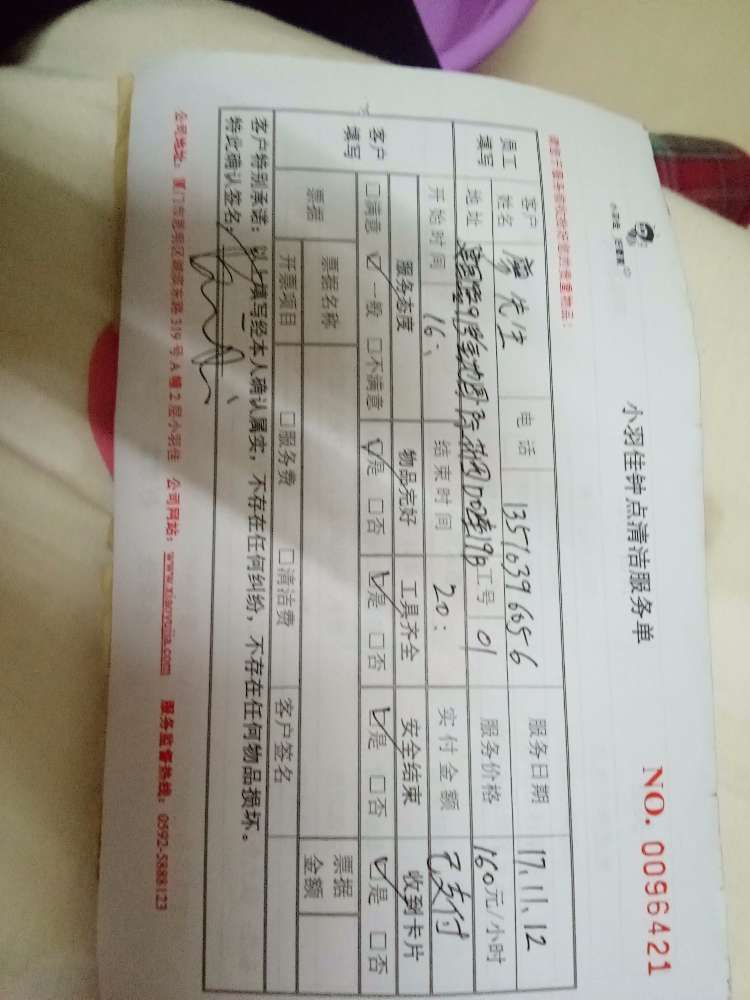 小羽佳钟点清洁服务单
NO. 0096421
员工填写
客户姓名 先生 电话 13516396656 服务日期 17.11.12
地址 D0座19B 工号 01 服务价格 160元/小时
开始时间 16: 结束时间 20: 实付金额 已支付
客户填写
服务态度 物品完好 工具齐全 安全结束 收到卡片
□满意 ☑一般 □不满意 ☑是 □否 ☑是 □否 ☑是 □否 ☑是 □否
票据 票据名称 票据金额
开票项目 □服务费 □清洁费 客户签名
客户特别承诺:以上填写经本人确认属实,不存在任何纠纷,不存在任何物品损坏。
特此确认签名:
公司地址:厦门市思明区湖滨东路319号A幢2层小羽佳 公司网站:www.xiaoyujia.com 服务监督热线:0592-5888123